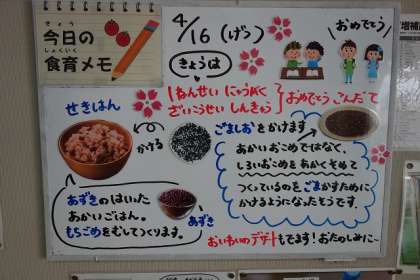 きょう
今日の
しょくいく
食育メモ
4/16 (げつ)
おめでとう
きょうは
にゅうがく
ざいこうせい しんきゅう
おめでとう こんだて
せきはん
かける
ごましおをかけます
あかいおこめではなく、
しろいおこめをあかくそめて
つくっているのをごまかすために
かけるようになったそうです。
あずきのはいった
あかいごはん。
もちごめをむしてつくります。
あずき
おいわいのデザートもでます！おたのしみに〜